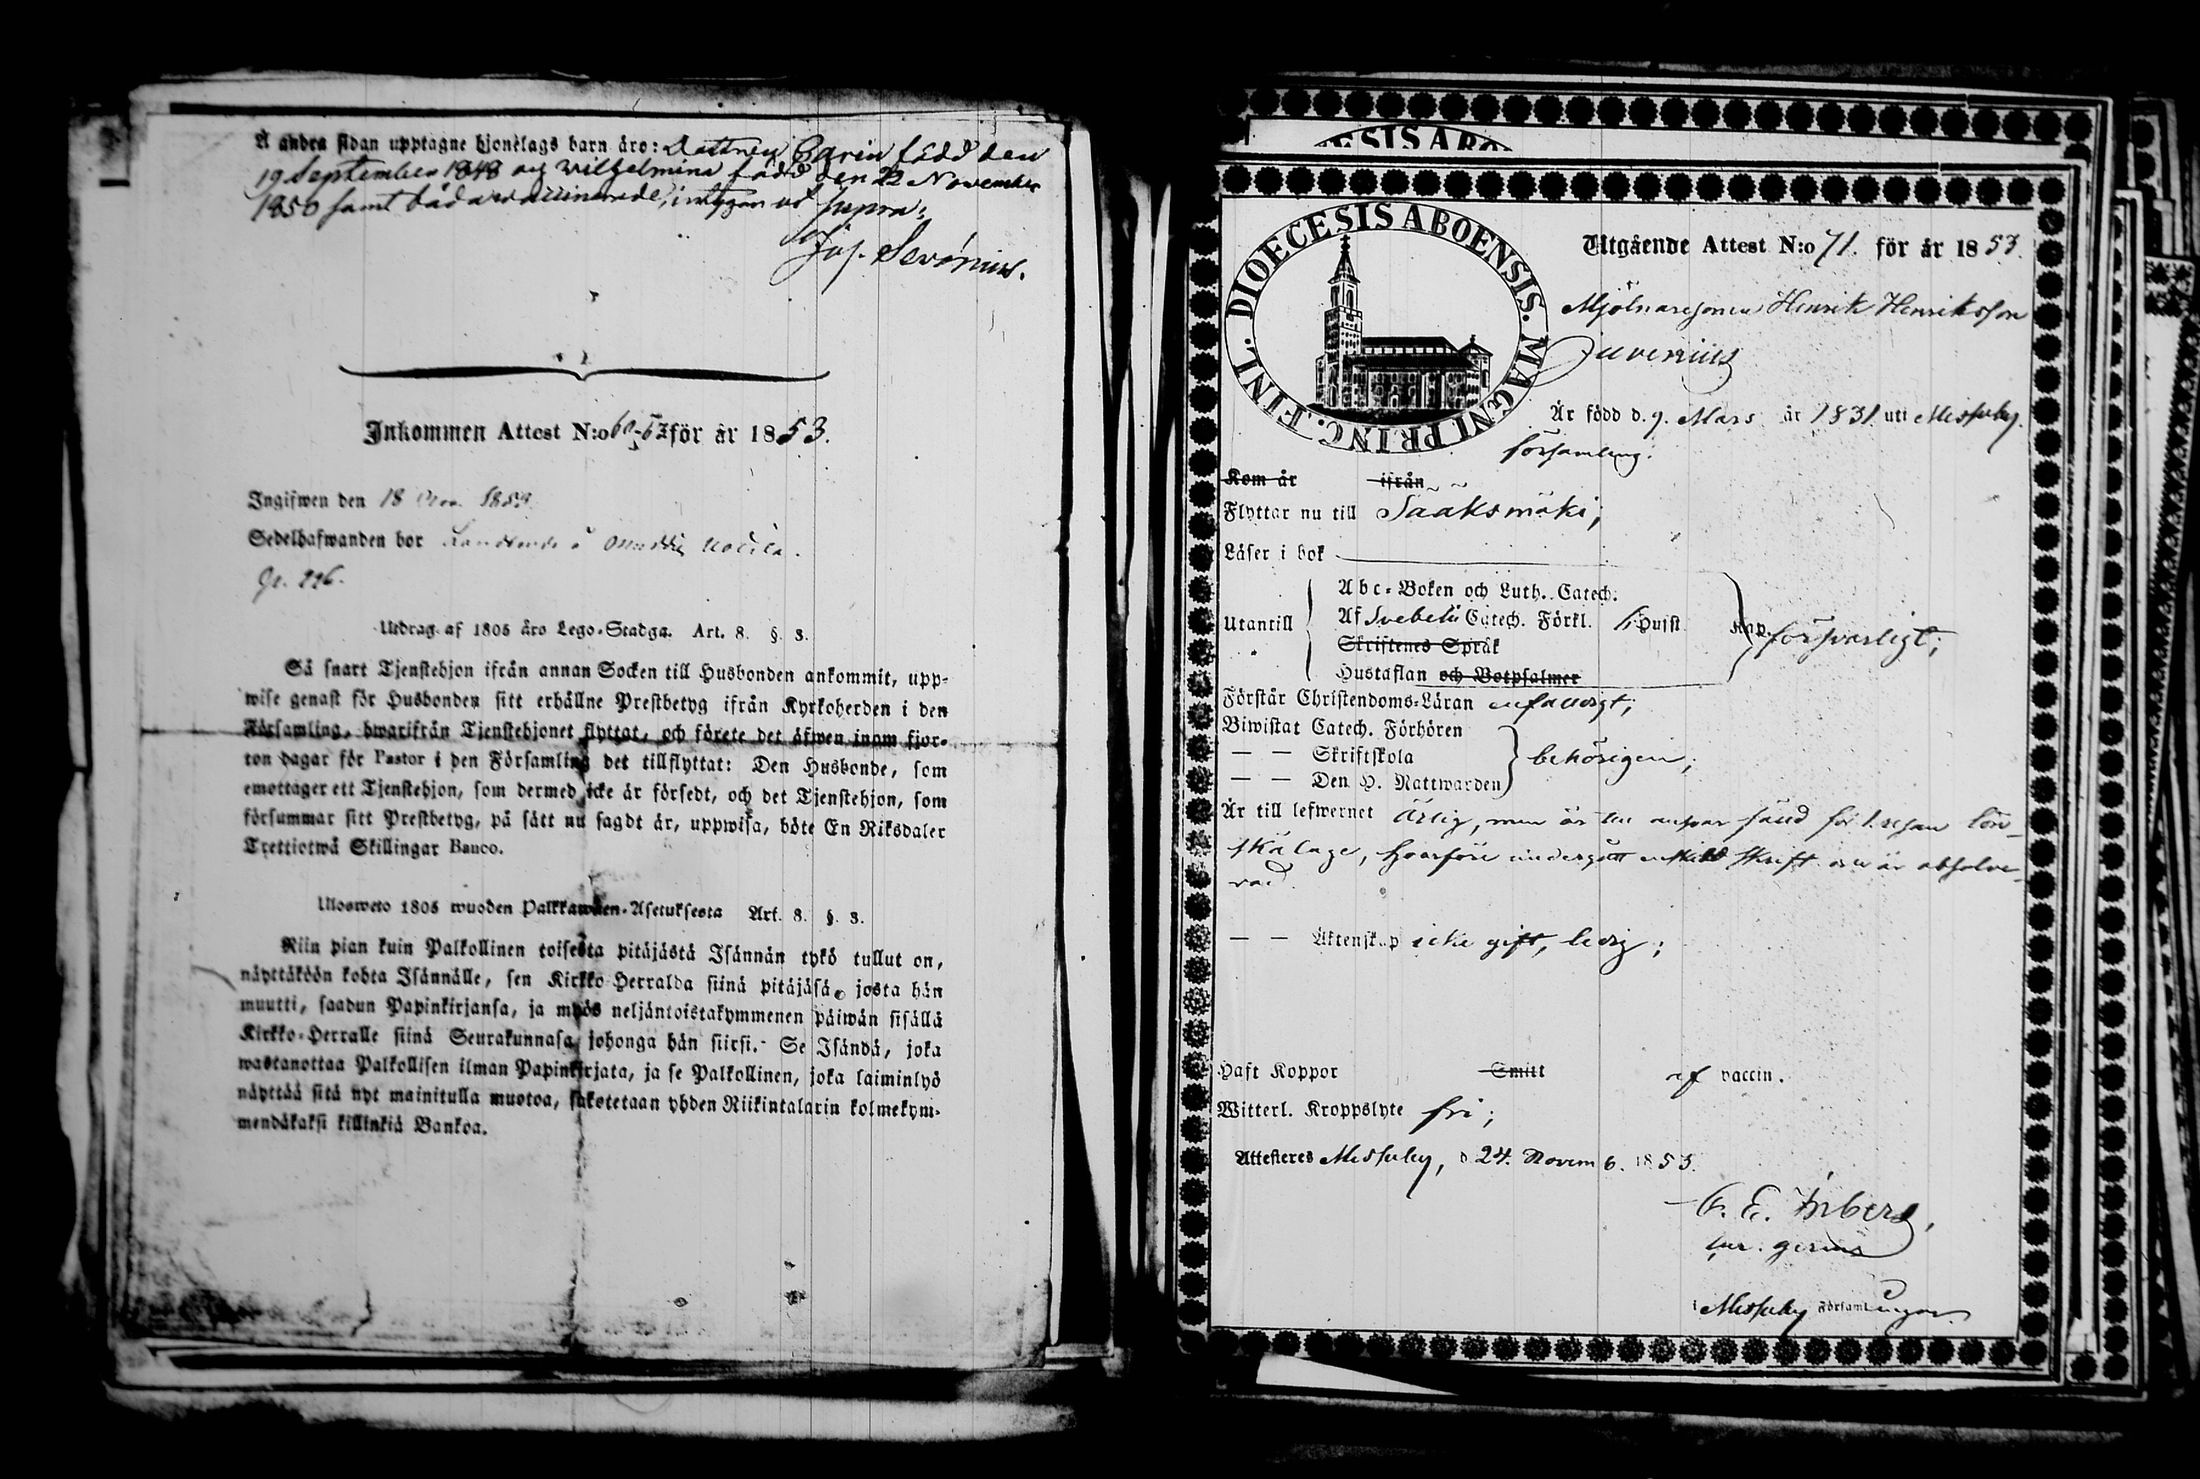 Å andra sidan upptagne hjonelags barn äro: Dottren Carin född den
19 September 1848 og Wilhelmina född den 22 November
1850 samt båda vaccinerade, intygar ut supra;
Joh. Serenius.
Inkommen Attest N:o 60-63 för år 1853.
Ingifwen den 18
Sedelhafwanden bor
Utdrag af 1805 års Lego-Stadga. Art. 8. §. 3.
Så snart Tjenstehjon ifrån annan Socken till Husbonden ankommit, upp-
wise genast för Husbonden sitt erhållne Prestbetyg ifrån Kyrkoherden i den
Församling, hwarifrån Tjenstehjonet flyttat, och förete det äfwen inom fjor-
ton dagar för Pastor i den Församling det tillflyttat: Den Husbonde, som
emottager ett Tjenstehjon, som dermed icke är försedt, och det Tjenstehjon, som
försummar sitt Prestbetyg, på sätt nu sagdt är, uppwisa, böte En Riksdaler
Trettiotwå Skillingar Banco.
Ulosweto 1805 wuoden Palkkawäen-Asetuksesta Art. 8. §. 3.
Niin pian kuin Palkollinen toisesta pitäjästä Isännän tykö tullut on,
näyttäköön kohta Isännälle, sen Kirkko-Herralda siinä pitäjäsä, josta hän
muutti, saadun Papinkirjansa, ja myös neljäntoistakymmenen päiwän sisällä
Kirkko-Herralle siinä Seurakunnasa johonga hän siirsi. Se Isändä, joka
wastanottaa Palkollisen ilman Papinkirjata, ja se Palkollinen, joka laiminlyö
näyttää sitä nyt mainitulla muotoa, sakotetaan yhden Riikintalarin kolmekym-
mendäkaksi killinkiä Bankoa.
DIOECESIS ABOENSIS. MAGNI PRINC. FINL.
Utgående Attest N:o 71. för år 1853.
Mjölnaresonen Henrik Henriksson
Juvenius
Är född d. 9. Mars år 1831 uti Messuby
församling.
Kom år ifrån
Flyttar nu till Sääksmäki;
Läser i bok
Utantill
Abc-Boken och Luth. Catech.
Af Svebelii Catech. Förkl. Hufst. Kap. försvarligt;
Skriftenes Språk
Hustaflan och Botpsalmer
Förstår Christendoms-Läran enfaldigt;
Biwistat Catech. Förhören
— — Skriftskola behörigen;
— — Den H. Nattwarden
Är till lefwernet ärlig, men är för 1. resan lön-
skaläge, hvarföre undergått enskild skrift och är absolve-
rad.
— — Äktenskap icke gift, ledig;
Haft Koppor Smitt af vaccin.
Witterl. Kroppslyte fri;
Attesteres Messuby, d 24. Novemb. 1853.
i Messuby Församlingar.